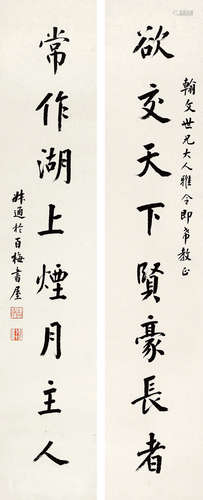 翰文世兄大人雅令即希教正
欲交天下賢豪長者
常作湖上煙月主人
於百梅書屋